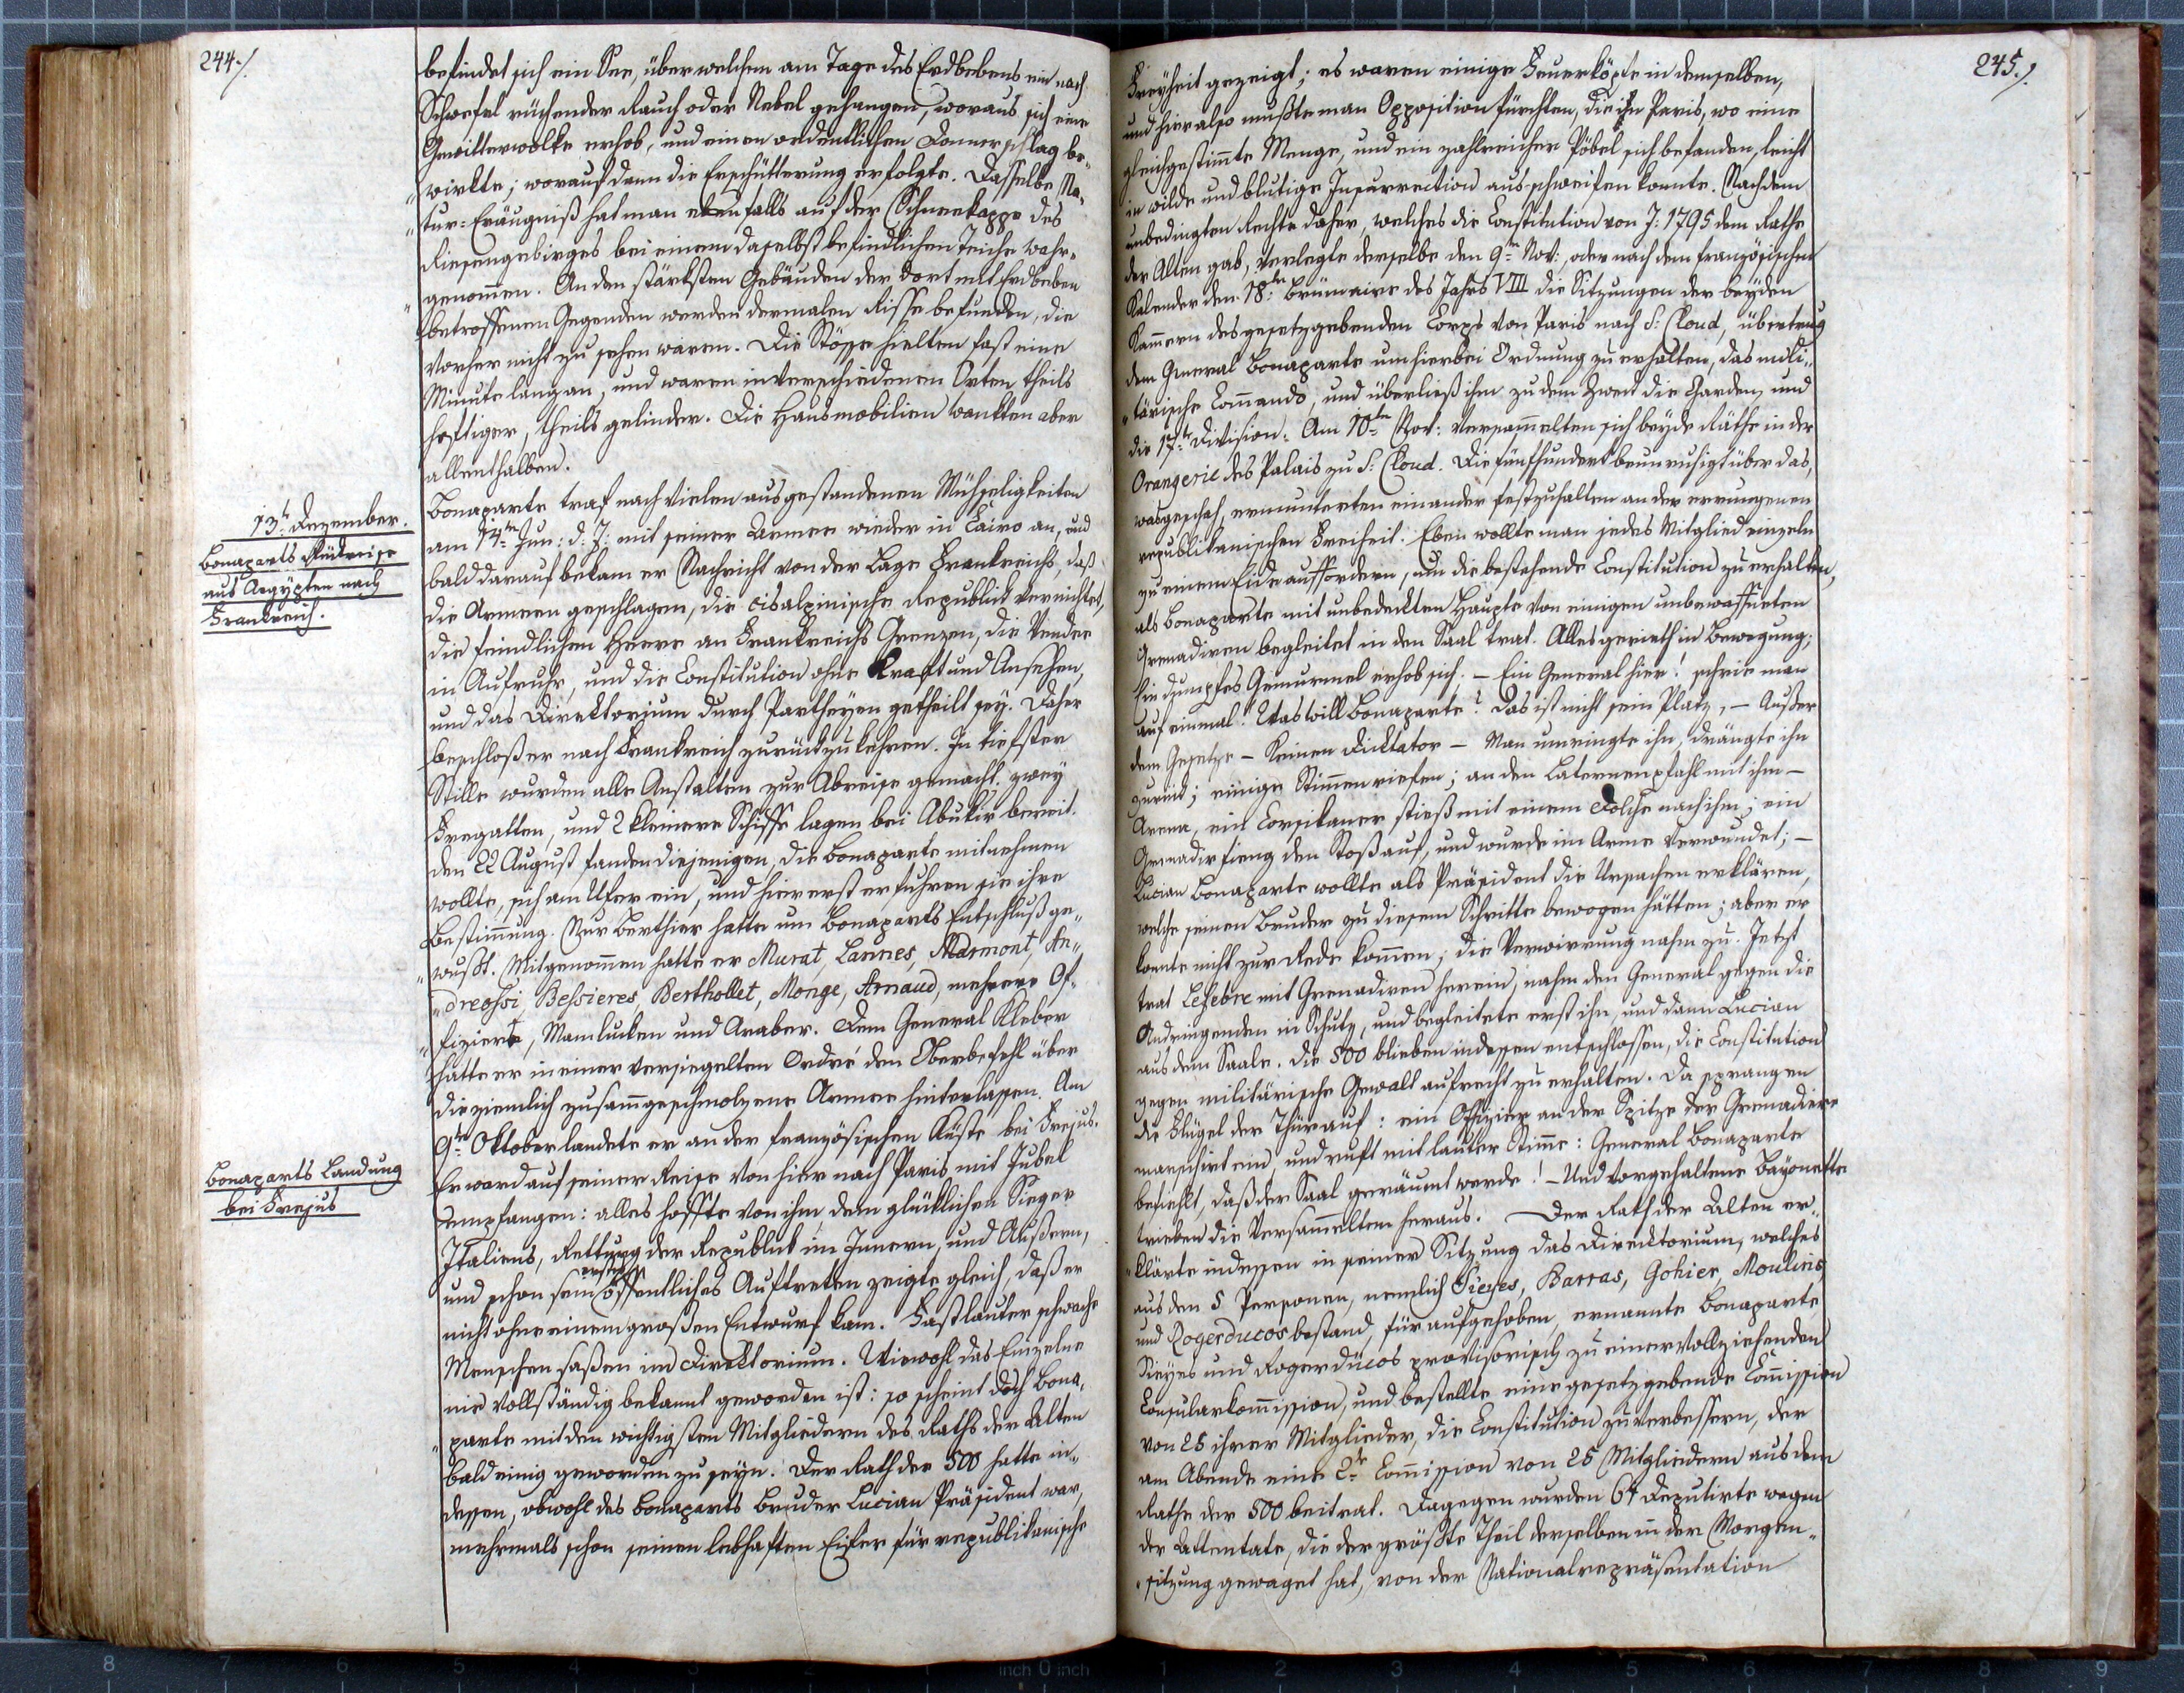 244./.
befindet sich ein See, über welchem am Tage des Erdbebens ein nach
Schwefel riechender Rauch oder Nebel gehangen, woraus sich eine
Gewitterwolke erhob, und einen ordentlichen Donnerschlag be„
„wirkte; worauf dann die Erschütterung erfolgte. Dasselbe Na„
„tur-Eräugniß hat man ebenfalls auf der Schneekappe des
Riesengebirges bei einem daselbst befindlichen Teiche wahr„
„genommen. An den stärksten Gebäuden der dort mit Erdbeben
betroffenen Gegenden werden dermalen Risse befunden, die
vorher nicht zu sehen waren. Die Stösse hielten fast eine
Minute lang an, und waren in verschiedenen Orten theils
heftiger, theils gelinder. Die Hausmobilien wankten aber
allenthalben.
13t Dezember.
Bonaparts Rükreise
aus Aegÿpten nach
Frankreich.
Bonaparte traf nach vielen ausgestandenen Mühseligkeiten
am 14tn Jun: d: J: mit seiner Armee wieder in Cairo an, und
bald darauf bekam er Nachricht von der Lage Frankreichs, daß
die Armeen geschlagen, die cisalpinische Republick vernichtet,
die feindlichen Heere an Frankreichs Grenzen, die Vendee
in Aufruhr, und die Constitution ohne Kraft und Ansehen,
und das Direktorium durch Partheyen getheilt sey. Daher
beschloß er nach Frankreich zurückzukehren. In tiefster
Stille wurden alle Anstalten zur Abreise gemacht; zwey
Fregatten, und 2 kleinere Schiffe lagen bei Abukir bereit.
den 22 August fanden diejenigen, die Bonaparte mitnehmen
wollte, sich am Ufer ein, und hier erst erfuhren sie ihre
Bestimmung. Nur Berthier hatte um Bonaparts Entschluß ge„
„wußt. Mitgenommen hatte er Murat, Lannes, Marmont, An„
„dreossi, Bessieres, Berthollet, Monge, Arnaud, mehrere Of„
„fiziere, Mamlucken und Araber. Dem General Kleber
hatte er in einer versiegelten Ordré den Oberbefehl über
die ziemlich zusammgeschmolzene Armee hinterlassen. Am
9tn Oktober landete er an der französischen Küste bei Frejus.
Bonaparts Landung
bei Frejus
Er ward auf seiner Reise von hier nach Paris mit Jubel
empfangen: alles hoffte von ihm dem glüklichen Sieger
Italiens, Rettung der Republick im Innern, und Außern,
und schon sein erstes öffentliches Auftreten zeigte gleich, daß er
nicht ohne einem großen Entwurf kam. Fast lauter schwache
Menschen saßen im Direktorium. Wiewohl das Einzelne
nie vollständig bekannt geworden ist: so scheint doch Bona„
„parte mit den wichtigsten Mitgliedern des Raths der Alten
bald einig geworden zu seyn. Der Rath der 500 hatte in„
dessen, obwohl des Bonaparts Bruder Lucian Präsident war,
mehrmals schon seinen lebhaften Eifer für republikanische
245./.
Freyheit gezeigt; es waren einige Feuerköpfe in demselben,
und hier also mußte man Opposition fürchten, die in Paris, wo eine
gleichgestimmte Menge, und ein zahlreicher Pöbel sich befanden, leicht
in wilde und blutige Insurrection ausschweifen konnte. Nach dem
unbedingten Rechte daher, welches die Constitution von J: 1795 dem Rathe
der Alten gab, verlegte derselbe den 9tn Nov: oder nach dem französischen
Kalender den 18tn Brümaire des Jahrs VIII die Sitzungen der beyden
Kammern des gesetzgebenden Corps von Paris nach S: Cloud, übertrug
dem General Bonaparte um hierbei Ordnung zu erhalten, das mili„
„tärische Commando, und überließ ihm zu dem Zweck die Garden, und
die 17te Division. Am 10tn Nov: versammelten sich beyde Räthe in der
Orangerie des Palais zu S: Cloud. Die fünfhundert beunruhigt über das,
was geschah, ermunterten einander festzuhalten an der errungenen
republikanischen Freiheit. Eben wollte man jedes Mitglied einzeln
zu einem Eide auffordern, um die bestehende Constitution zu erhalten,
als Bonaparte mit unbedeckten Haupte von einigen unbewaffneten
Grenadiren begleitet in den Saal trat. Alles gerieth in Bewegung;
Ein dumpfes Gemurmel erhob sich. – Ein General hier! schrie man
auf einmal! Was will Bonaparte? Das ist nicht sein Platz, – Außer
dem Gesetze – Keinen Dicktator – Man umringte ihn, drängte ihn
zurück; einige Stimmen riefen; an den Laternenpfahl mit ihm –
Arena, ein Corsikaner stieß mit einem Dolche nach ihm; ein
Grenadir fieng den Stoß auf, und wurde im Arme verwundet; –
Lucian Bonaparte wollte als Präsident die Ursachen erklären,
welche seinen Bruder zu diesem Schritte bewogen hätten; aber er
konnte nicht zur Rede kommen; die Verwirrung nahm zu. Jetzt
trat Lefebre mit Grenadiren herein, nahm den General gegen die
Andringenden in Schutz, und begleitete erst ihn, und dann Lucian
aus dem Saale. Die 500 blieben indessen entschlossen, die Constitution
gegen militärische Gewalt aufrecht zu erhalten. Da sprangen
die Flügel der Thür auf: ein Offizier an der Spitze der Grenadiere
marschirt ein, und ruft mit lauter Stimme: General Bonaparte
befiehlt, daß der Saal geräumt werde! – Und vorgehaltene Bayonette
trieben die Versammelten heraus. Der Rath der Alten er„
„klärte indessen in seiner Sitzung das Direcktorium, welches
aus den 5 Personen, nemlich Sieyes, Barras, Gohier, Moulins,
und Rogerducos bestand, für aufgehoben, ernannte Bonaparte,
Sieyes und Rogerdücos provisorisch zu einer vollziehenden
Consularkommission, und bestellte eine gesetzgebende Commission
von 25 ihrer Mitglieder, die Constitution zu verbessern, der
am Abende eine 2te Commission von 25 Mitgliedern aus dem
Rathe der 500 beitrat. Dagegen wurden 61 Deputirte wegen
der Attentate, die der größte Theil derselben in der Morgen„
„sitzung gewaget hat, von der Nationalrepräsentation
8 7 6 5 4 3 2 1 inch 0 inch 1 2 3 4 5 6 7 8 9